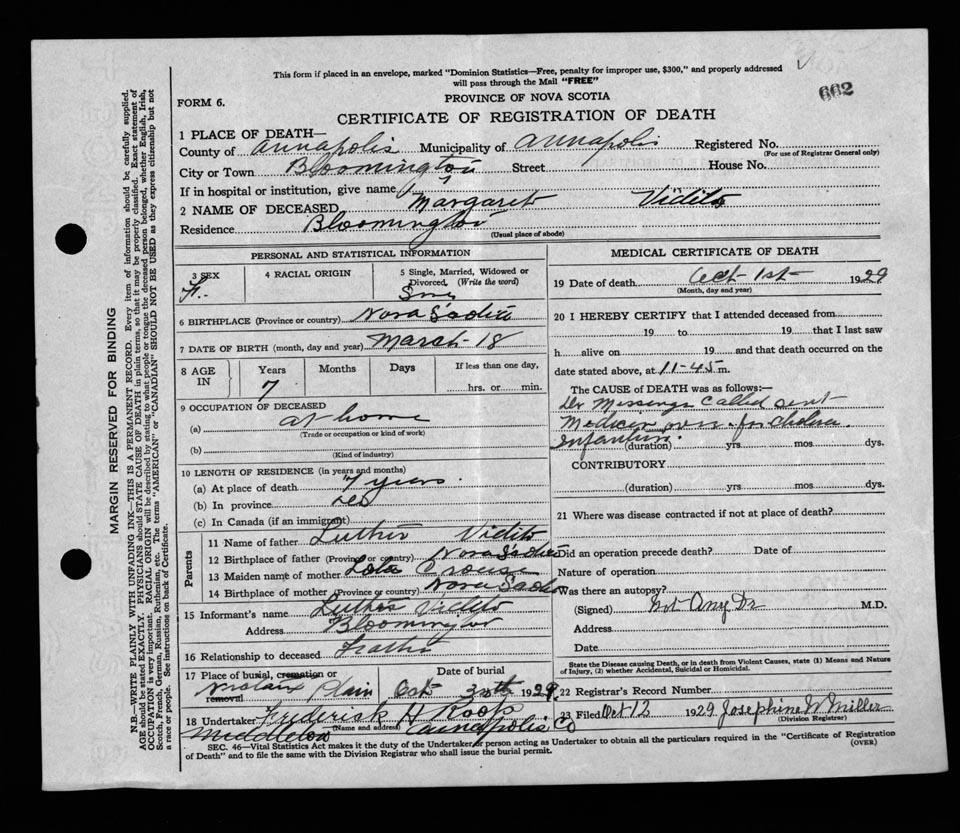 This form if placed in an envelope, marked "Dominion Statistics—Free, penalty for improper use, $300," and properly addressed
will pass through the Mail "FREE"
662
PROVINCE OF NOVA SCOTIA
FORM 6.
CERTIFICATE OF REGISTRATION OF DEATH
1 PLACE OF DEATH—
County of Annapolis Municipality of Annapolis Registered No.
(For use of Registrar General only)
City or Town Bloomington Street House No.
If in hospital or institution, give name
2 NAME OF DECEASED Margaret Vidito
Residence Bloomington
(Usual place of abode)
PERSONAL AND STATISTICAL INFORMATION
3 SEX 4 RACIAL ORIGIN 5 Single, Married, Widowed or
Divorced, (Write the word)
F.
6 BIRTHPLACE (Province or country) Nova Scotia
7 DATE OF BIRTH (month, day and year) March 18
8 AGE IN Years Months Days If less than one day,
7 hrs. or min.
9 OCCUPATION OF DECEASED
(a) at home
(Trade or occupation or kind of work)
(b)
(Kind of industry)
10 LENGTH OF RESIDENCE (in years and months)
(a) At place of death 7 years.
(b) In province
(c) In Canada (if an immigrant)
Parents
11 Name of father Luther Vidito
12 Birthplace of father (Province or country) Nova Scotia
13 Maiden name of mother Lola Crouse
14 Birthplace of mother (Province or country) Nova Scotia
15 Informant's name Luther Vidito
Address Bloomington
16 Relationship to deceased Father
17 Place of burial, cremation or Date of burial
removal Plain Oct 1929
18 Undertaker Frederick H Roop
(Name and address)
Middleton Annapolis Co
MEDICAL CERTIFICATE OF DEATH
19 Date of death Oct 1st 1929
(Month, day and year)
20 I HEREBY CERTIFY that I attended deceased from
19 to 19 that I last saw
h alive on 19 and that death occurred on the
date stated above, at 11-45 m.
The CAUSE of DEATH was as follows:—
Dr Messenger called sent
Medicin over for cholera
infantum.
(duration) yrs mos dys.
CONTRIBUTORY
(duration) yrs mos dys.
21 Where was disease contracted if not at place of death?
Did an operation precede death? Date of
Nature of operation
Was there an autopsy?
(Signed) Not Any Dr M.D.
Address
Date
State the Disease causing Death, or in death from Violent Causes, state (1) Means and Nature
of Injury, (2) whether Accidental, Suicidal or Homicidal.
22 Registrar's Record Number
23 Filed Oct 13 1929 Josephine W Miller
(Division Registrar)
SEC. 46—Vital Statistics Act makes it the duty of the Undertaker or person acting as Undertaker to obtain all the particulars required in the "Certificate of Registration
of Death" and to file the same with the Division Registrar who shall issue the burial permit.
(OVER)
MARGIN RESERVED FOR BINDING
N.B.—WRITE PLAINLY WITH UNFADING INK—THIS IS A PERMANENT RECORD. Every item of information should be carefully supplied.
AGE should be stated EXACTLY. PHYSICIANS should STATE CAUSE OF DEATH in plain terms, so that it may be properly classified. Exact statement of
OCCUPATION is very important. RACIAL ORIGIN will be described by stating to what people or tongue the deceased person belonged, whether English, Irish,
Scotch, French, German, Russian, Ruthenian, etc. The terms "AMERICAN" or "CANADIAN" SHOULD NOT BE USED as they express citizenship but not
a race or people. See instructions on back of Certificate.